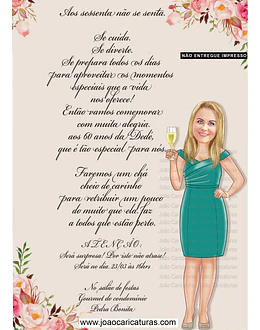 Aos sessenta não se senta.
Se cuida.
Se diverte.
Se prepara todos os dias
para aproveitar os momentos
especiais que a vida
nos oferece!
Então vamos comemorar
com muita alegria
aos 60 anos da Dedé,
que é tão especial para nós.
Faremos um chá
cheio de carinho
para retribuir um pouco
do muito que ela faz
a todos que estão por perto.
ATENÇÃO:
Será surpresa! Por isto não atrase!
Será no dia 23/03 às 16hrs
No salão de festas
Gourmet do condomínio
Pedra Bonita
NÃO ENTREGUE IMPRESSO
www.joaocaricaturas.com